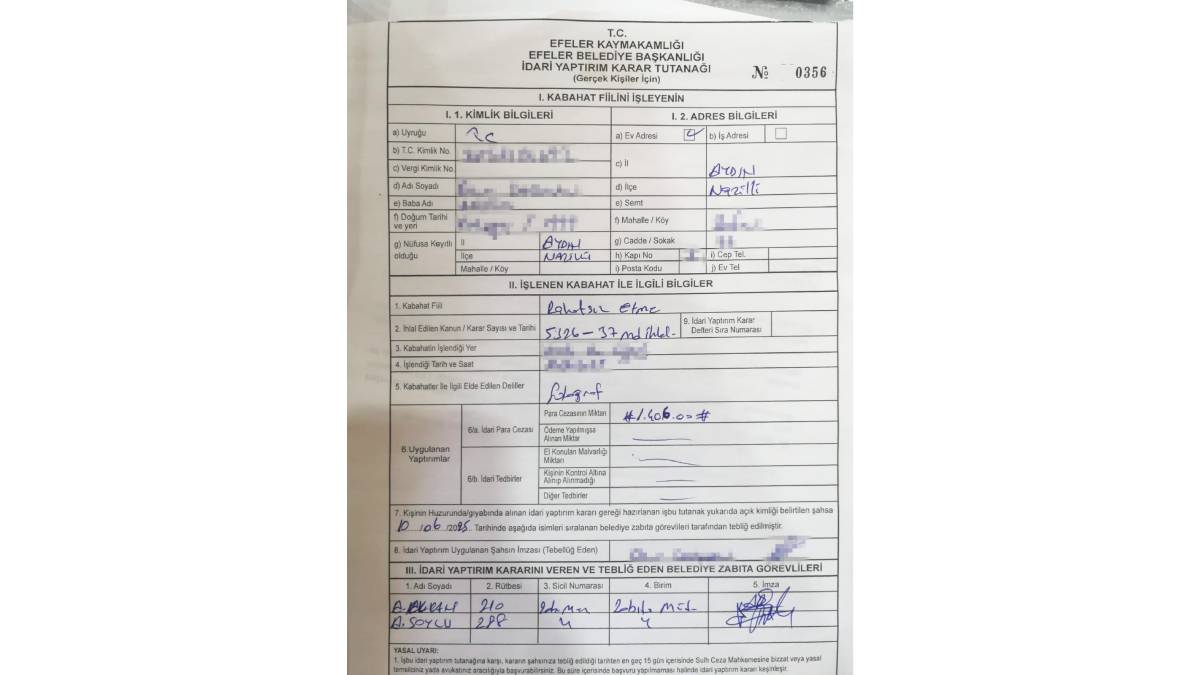 T.C.
EFELER KAYMAKAMLIĞI
EFELER BELEDİYE BAŞKANLIĞI
İDARİ YAPTIRIM KARAR TUTANAĞI
(Gerçek Kişiler İçin)
№ 0356
I. KABAHAT FİİLİNİ İŞLEYENİN
I. 1. KİMLİK BİLGİLERİ
I. 2. ADRES BİLGİLERİ
a) Uyruğu TC
a) Ev Adresi b) İş Adresi
b) T.C. Kimlik No.
c) Vergi Kimlik No.
c) İl AYDIN
d) Adı Soyadı
d) İlçe Nazilli
e) Baba Adı
e) Semt
f) Doğum Tarihi ve yeri
f) Mahalle / Köy
g) Nüfusa Kayıtlı olduğu
İl AYDIN
g) Cadde / Sokak
İlçe NAZİLLİ
h) Kapı No i) Cep Tel.
Mahalle / Köy
i) Posta Kodu j) Ev Tel
II. İŞLENEN KABAHAT İLE İLGİLİ BİLGİLER
1. Kabahat Fiili Rahatsız Etme
2. İhlal Edilen Kanun / Karar Sayısı ve Tarihi 5326-37 md ihlal-
9. İdari Yaptırım Karar Defteri Sıra Numarası
3. Kabahatin İşlendiği Yer
4. İşlendiği Tarih ve Saat
5. Kabahatler İle İlgili Elde Edilen Deliller fotograf
6. Uygulanan Yaptırımlar
6/a. İdari Para Cezası
Para Cezasının Miktarı #1.406.00#
Ödeme Yapılmışsa Alınan Miktar
6/b. İdari Tedbirler
El Konulan Malvarlığı Miktarı
Kişinin Kontrol Altına Alınıp Alınmadığı
Diğer Tedbirler
7. Kişinin Huzurunda/gıyabında alınan idari yaptırım kararı gereği hazırlanan işbu tutanak yukarıda açık kimliği belirtilen şahsa
10/06/2025 Tarihinde aşağıda isimleri sıralanan belediye zabıta görevlileri tarafından tebliğ edilmiştir.
8. İdari Yaptırım Uygulanan Şahsın İmzası (Tebellüğ Eden)
III. İDARİ YAPTIRIM KARARINI VEREN VE TEBLİĞ EDEN BELEDİYE ZABITA GÖREVLİLERİ
1. Adı Soyadı 2. Rütbesi 3. Sicil Numarası 4. Birim 5. İmza
210 Zabıta Müd.
A. SOYLU 288
YASAL UYARI:
1. İşbu idari yaptırım tutanağına karşı, kararın şahsınıza tebliğ edildiği tarihten en geç 15 gün içerisinde Sulh Ceza Mahkemesine bizzat veya yasal
temsilciniz yada avukatınız aracılığıyla başvurabilirsiniz. Bu süre içerisinde başvuru yapılmaması halinde idari yaptırım kararı kesinleşir.